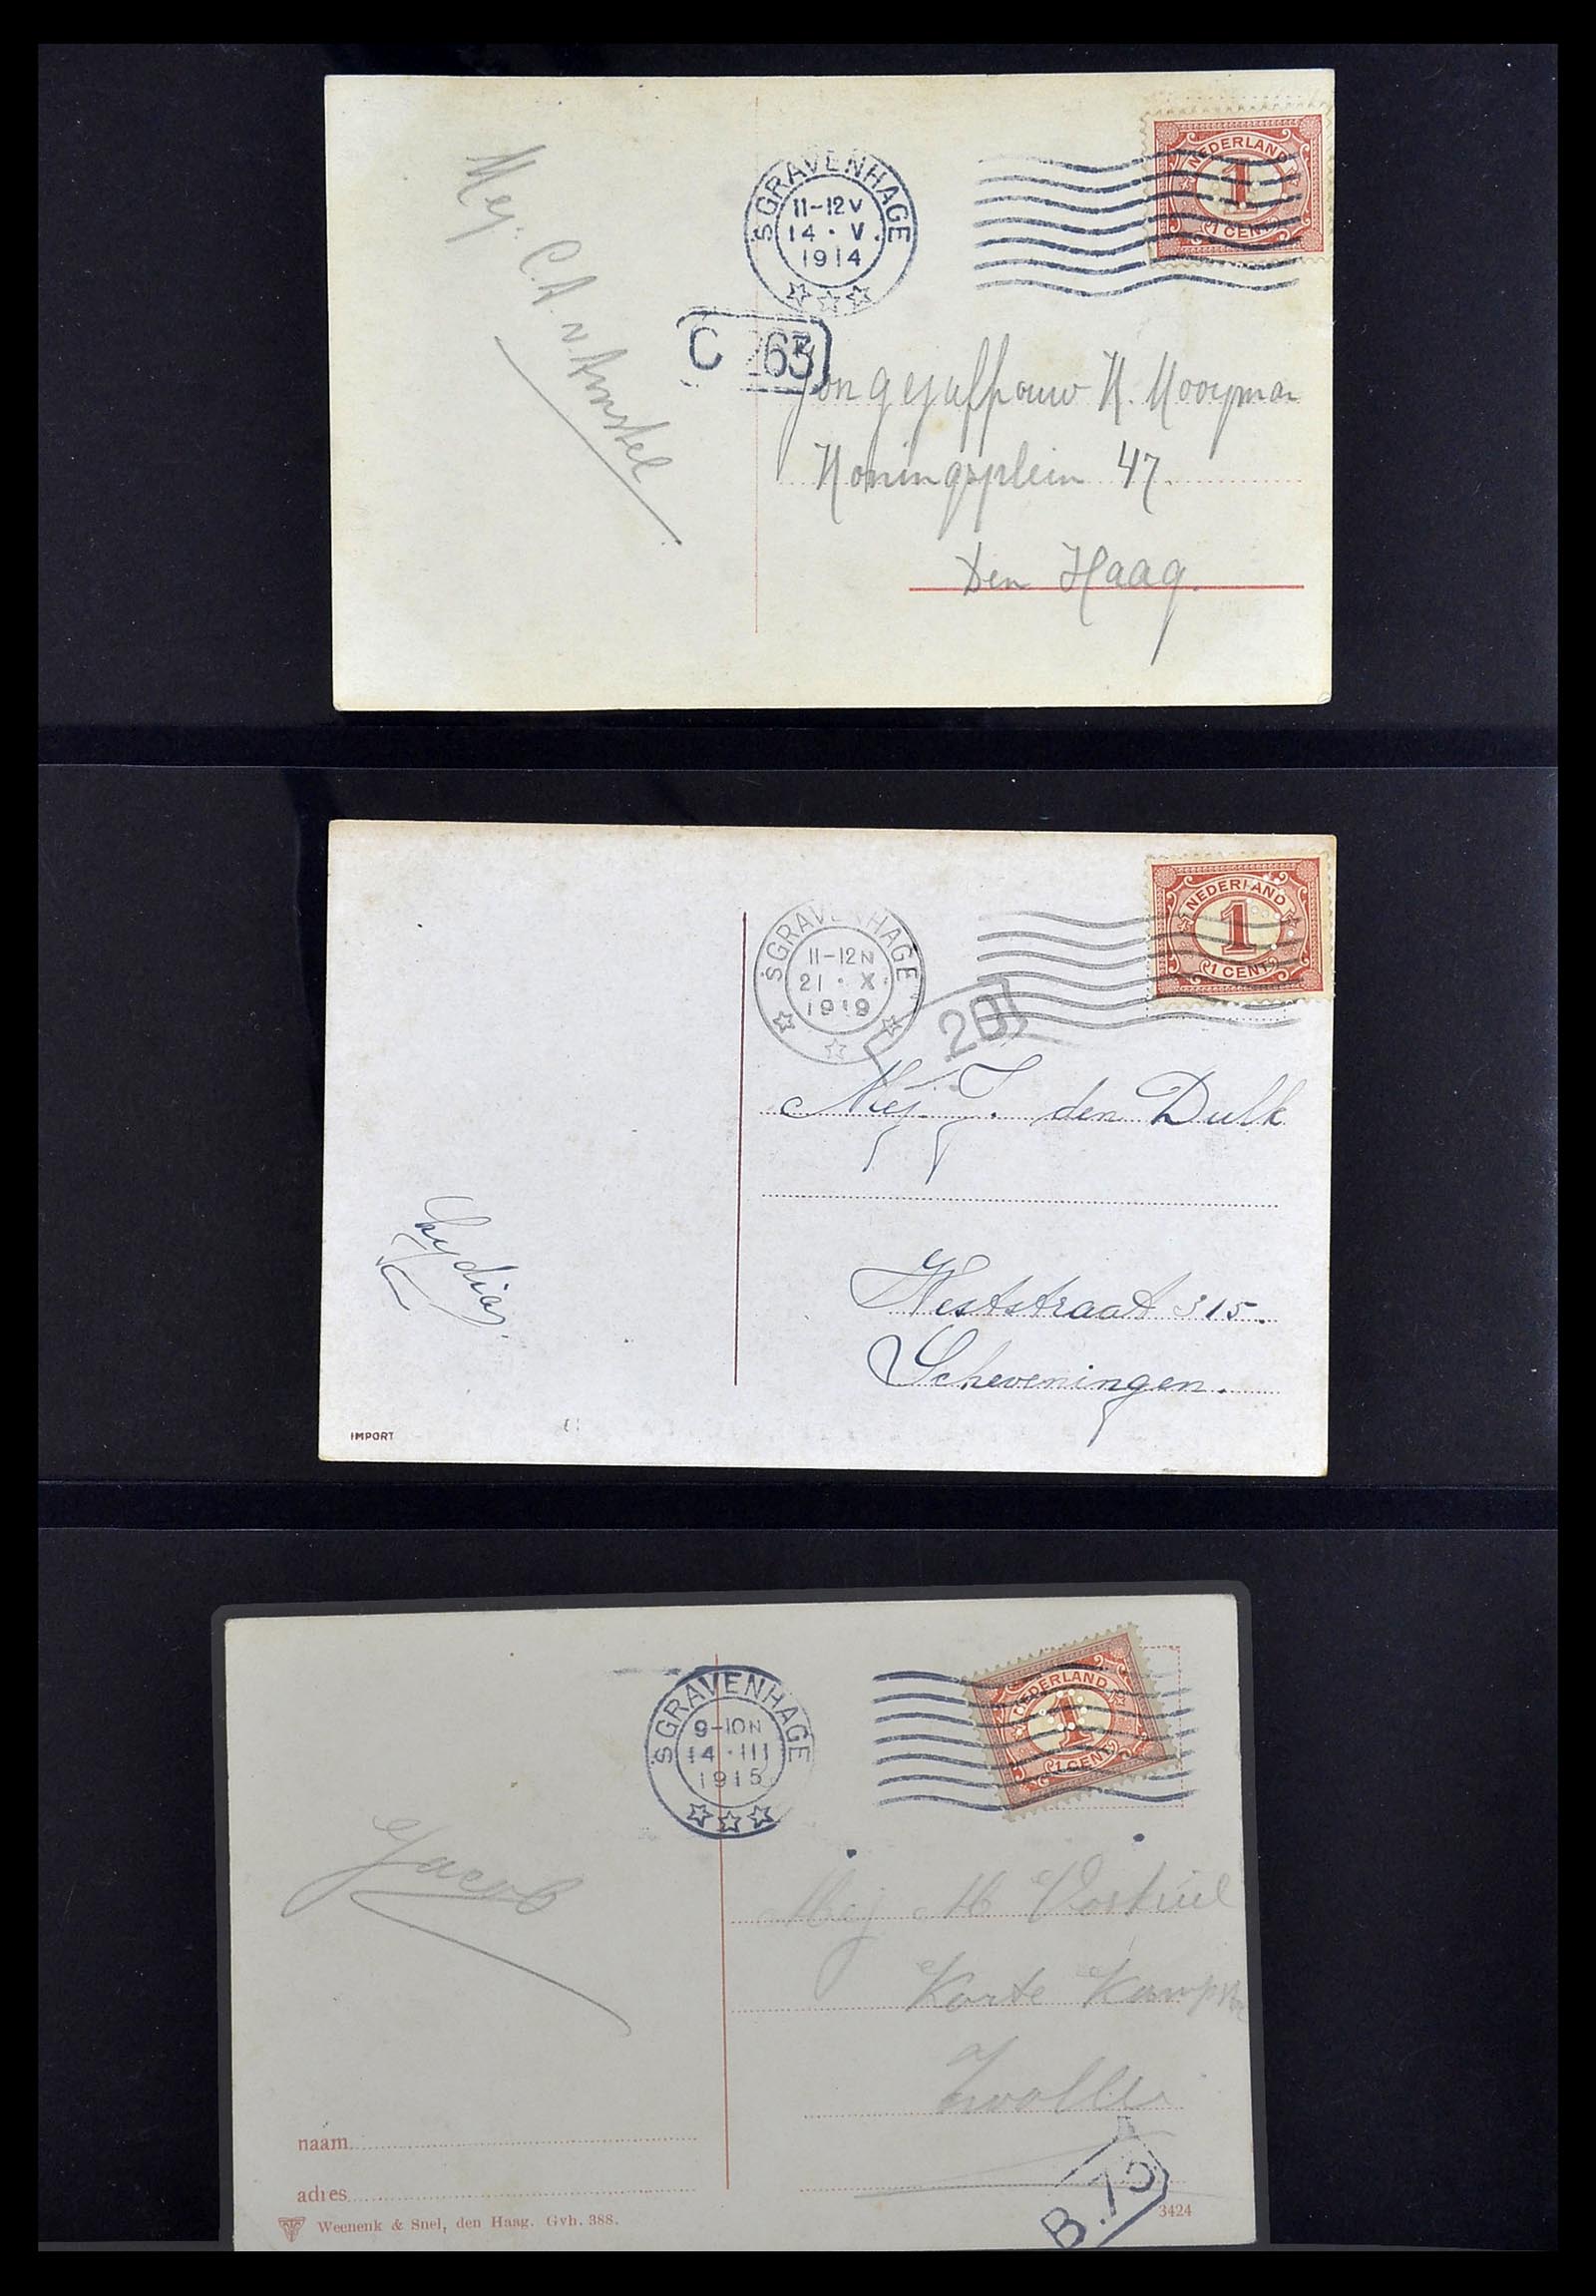 NEDERLAND
1
1 CENT
'S GRAVENHAGE
11-12V
14 · V.
1914
C 63
Mej. C.A. v. Amstel
Jongejuffrouw N. Mooyman
Koningsplein 47.
Den Haag.
NEDERLAND
1
1 CENT
'S GRAVENHAGE
11-12N
21 · X.
1919
Mej. J. den Dulk
Weststraat 315.
Scheveningen.
Lydia.
IMPORT
NEDERLAND
1
1 CENT
'S GRAVENHAGE
9-10N
14 · III
1915
Jacob
Mej M Voskuil
Korte
Zwolle
naam
adres
B.75
Weenenk & Snel, den Haag. Gvh. 388.
3424